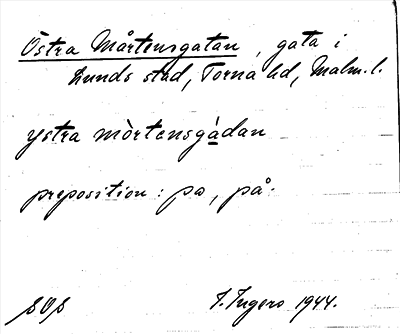 Östra Mårtensgatan, gata i
Lunds stad, Torna hd, Malm. l.
ystra mòrtensgádan
preposition: pa, på.
SOS
I. Ingers 1944.